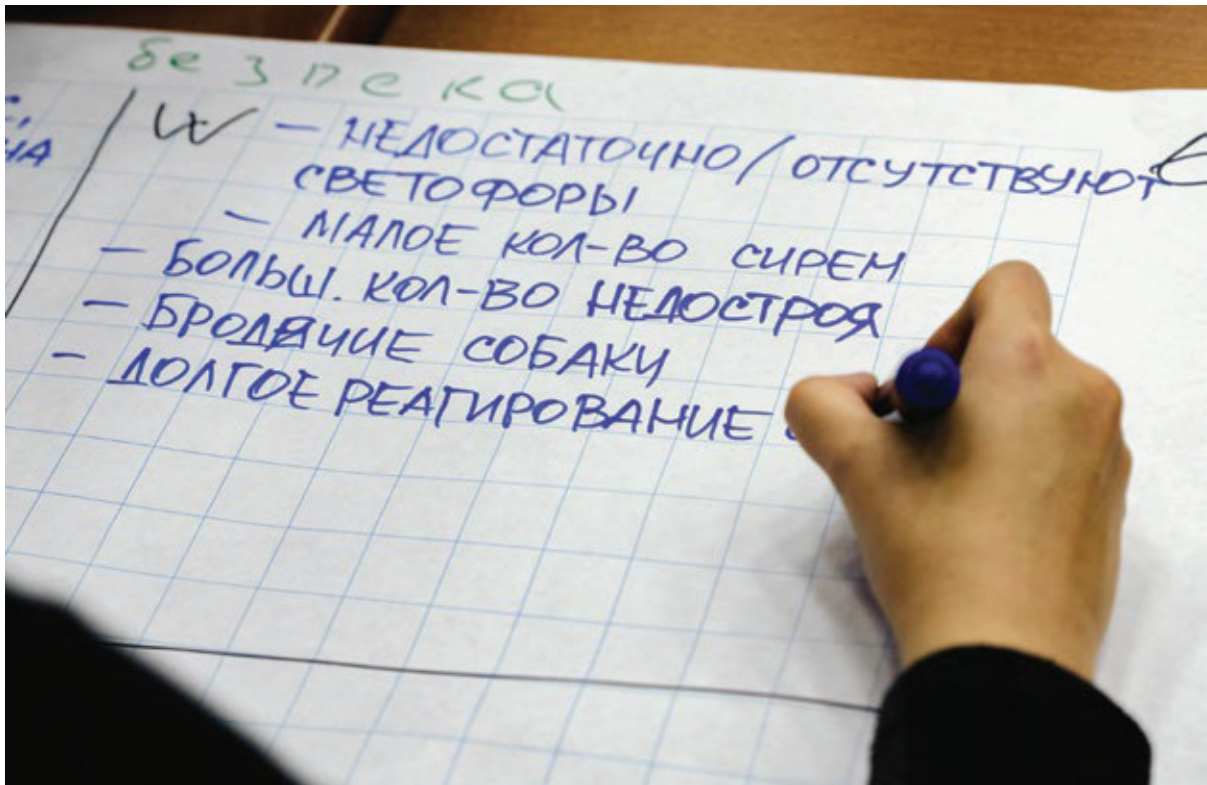 безпека
НА
W – НЕДОСТАТОЧНО/ОТСУТСТВУЮТ
СВЕТОФОРЫ
– МАЛОЕ КОЛ-ВО СИРЕН
– БОЛЬШ. КОЛ-ВО НЕДОСТРОЯ
– БРОДЯЧИЕ СОБАКИ
– ДОЛГОЕ РЕАГИРОВАНИЕ